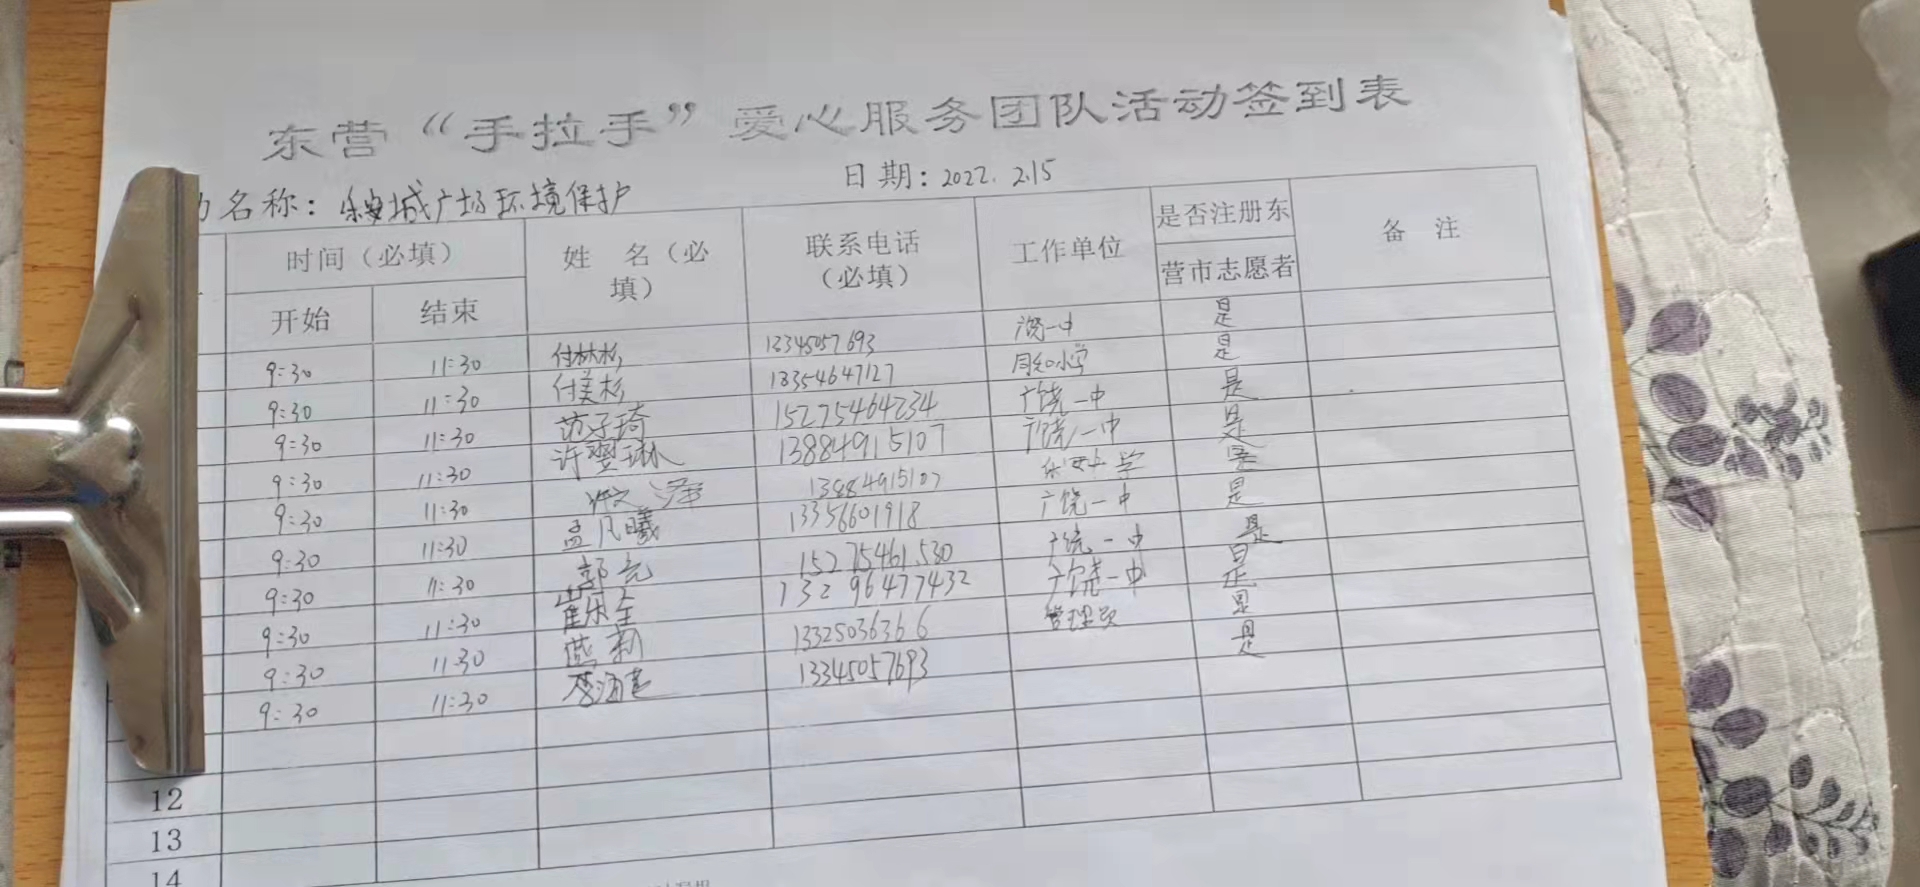 东营“手拉手”爱心服务团队活动签到表
名称：乐安城广场环境保护 日期：2022.2.15
时间（必填） 姓 名（必填） 联系电话（必填） 工作单位 是否注册东营市志愿者 备 注
开始 结束
9:30 11:30 付林杉 13345057693 广饶一中 是
9:30 11:30 付美杉 18354647127 小学 是
9:30 11:30 范子琦 15275464234 广饶一中 是
9:30 11:30 许翌琳 13884915107 广饶一中 是
9:30 11:30 许文泽 13884915107 乐安小学 是
9:30 11:30 孟凡曦 13356601918 广饶一中 是
9:30 11:30 郭亮 15275461530 广饶一中 是
9:30 11:30 崔乐全 13296477432 广饶一中 是
9:30 11:30 燕新 13325036366 管理 是
9:30 11:30 李海 13345057693 是
12
13
14